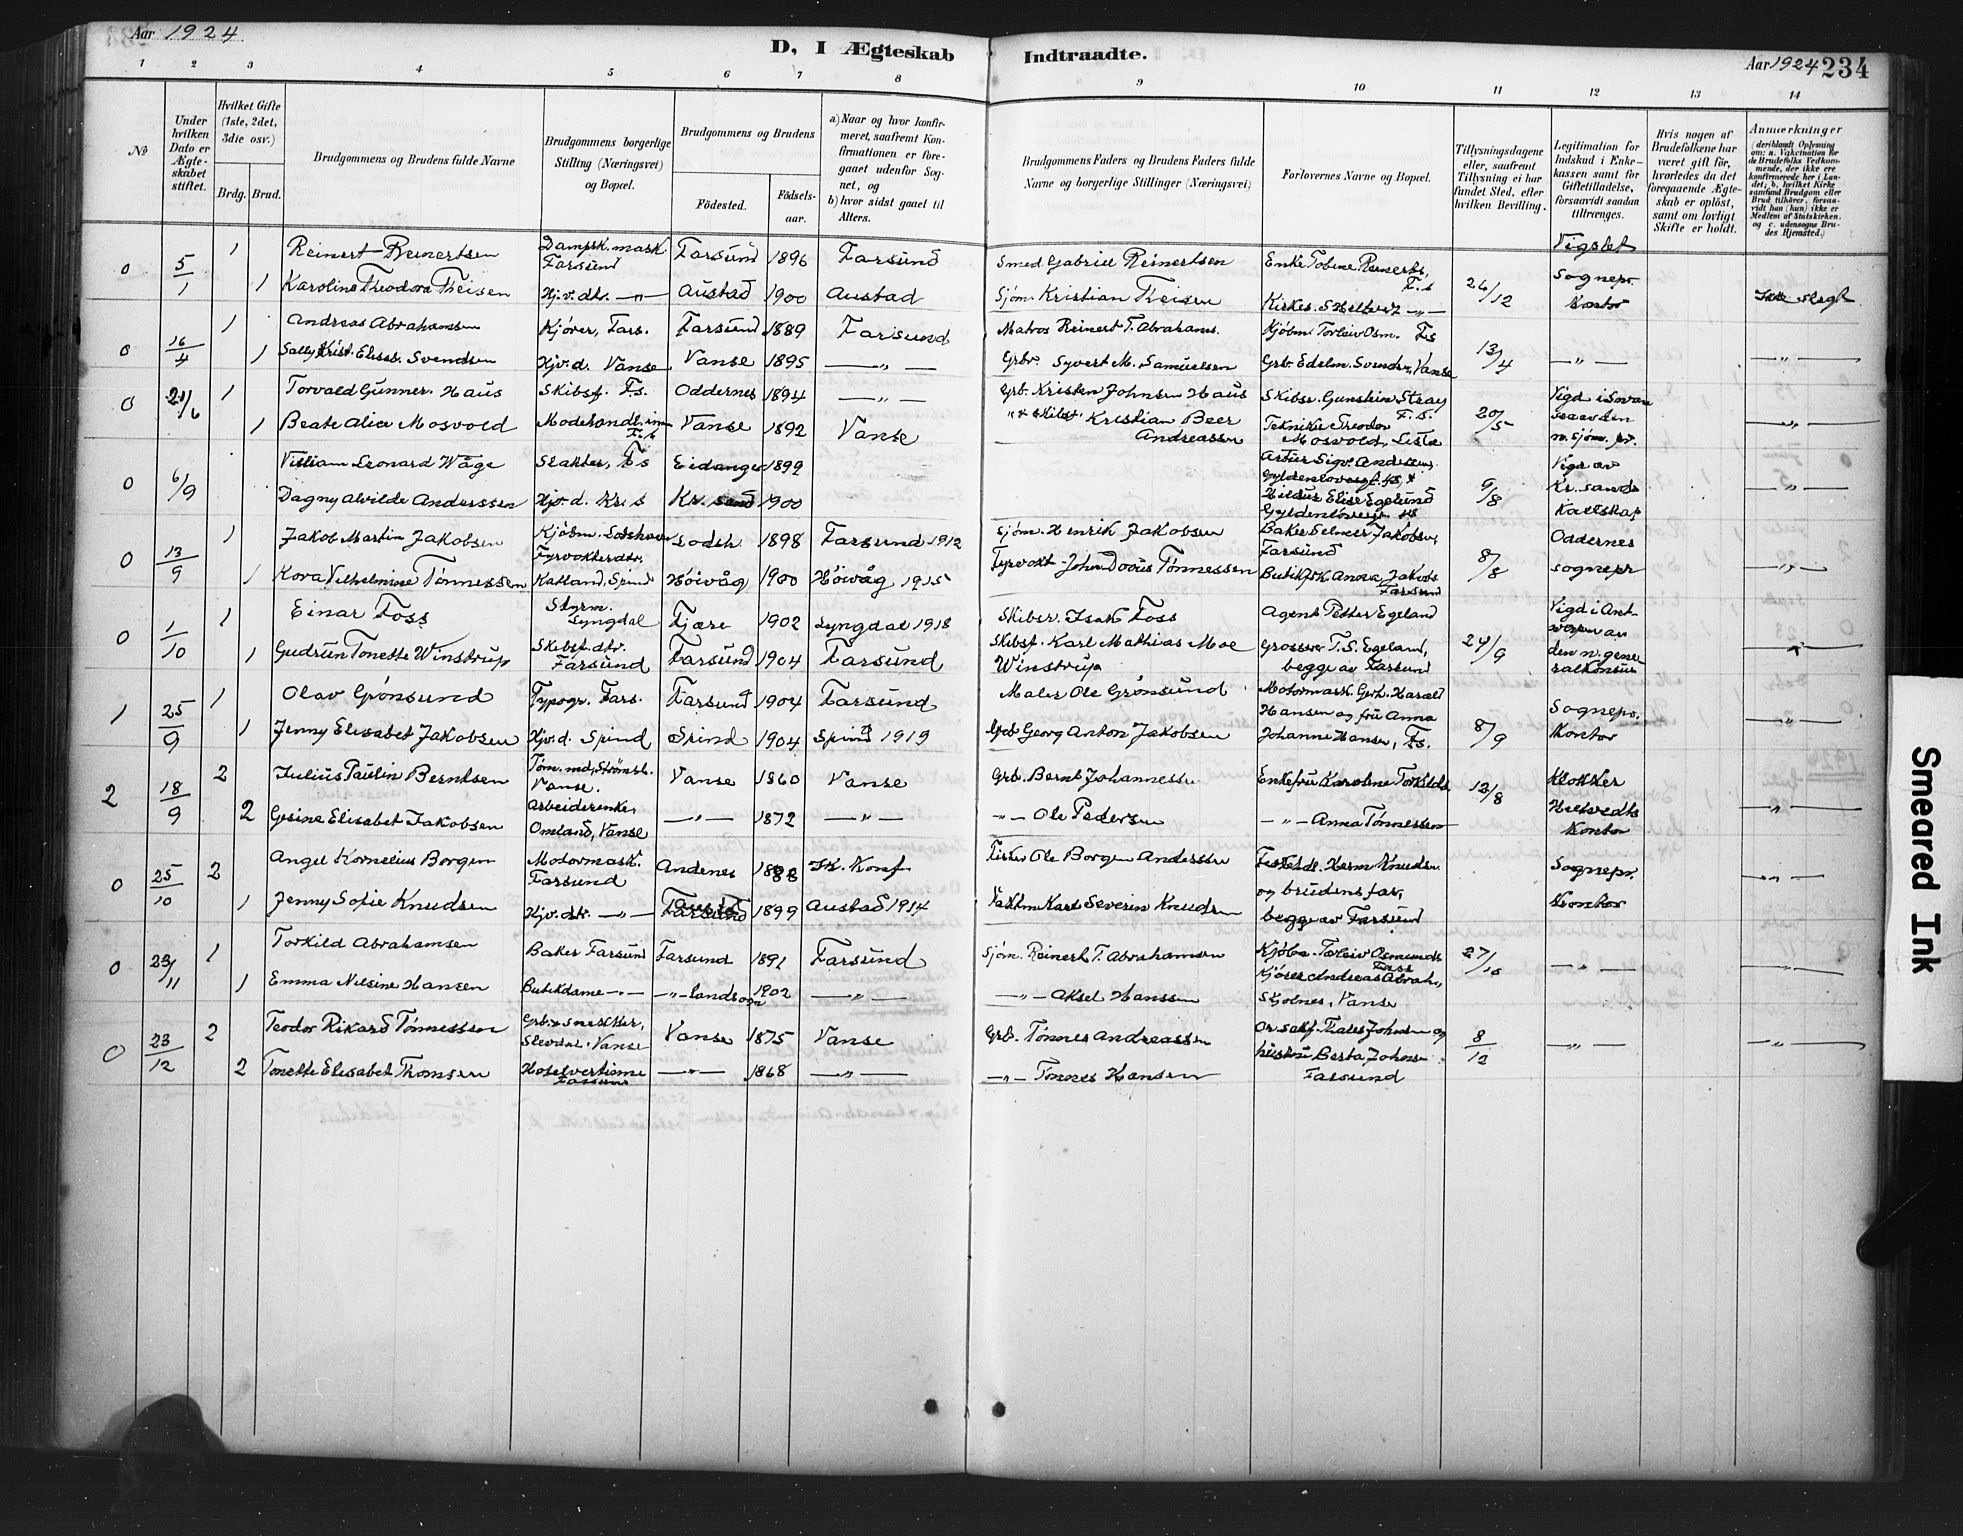 Aar 1924
D, I Ægteskab Indtraadte.
Aar 1924 234
1 2 3 4 5 6 7 8 9 10 11 12 13 14
№
Under hvilken Dato er Ægteskabet stiftet.
Hvilket Gifte (1ste, 2det, 3die osv.)
Brdg. Brud.
Brudgommens og Brudens fulde Navne
Brudgommens borgerlige Stilling (Næringsvei) og Bopæl.
Brudgommens og Brudens
Födested.
Födselsaar.
a) Naar og hvor konfirmeret, saafremt Konfirmationen er foregaaet udenfor Sognet, og
b) hvor sidst gaaet til Alters.
Brudgommens Faders og Brudens Faders fulde Navne og borgerlige Stillinger (Næringsvei)
Forlovernes Navne og Bopæl.
Tillysningsdagene eller, saafremt Tillysning ei har fundet Sted, efter hvilken Bevilling.
Legitimation for Indskud i Enkekassen samt for Giftetilladelse, forsaavidt saadan tiltrænges.
Hvis nogen af Brudefolkene har været gift för, hvorledes da det foregaaende Ægteskab er oplöst, samt om lovligt Skifte er holdt.
Anmærkninger
(deriblandt Oplysning om: a. Vakcination for de Brudefolks Vedkommende, der ikke ere konfirmerede her i Landet; b. hvilket Kirkesamfund Brudgom eller Brud tilhörer, forsaavidt han (hun) ikke er Medlem af Statskirken, og c. udensogns Brudes Hjemsted.)
0 5/1 1 Reinert Reinertsen Dampsk. mask. Farsund Farsund 1896 Farsund Smed Gabriel Reinertsen Enke Tobine Reinerts. F.s 26/12 Vigslet Sognepr. Kontor
1 Karoline Theodora Theisen Hjv. dtr. —"— Austad 1900 Austad Sjøm. Kristian Theisen Kirkes. —"— Ikke slegt
0 16/4 1 Andreas Abrahamsen Kjörer, Fars. Farsund 1889 Farsund Matros Reinert T. Abrahams. Kjøbm. Torleiv Osm. Fs 13/4 —"— —"—
1 Sally Krist. Elisab. Svendsen Hjv. d. Vanse Vanse 1895 —"— Grbr. Syvert M. Samuelsen Grb. Edelm. Svendsen, Vanse
0 21/6 1 Torvald Gunner. Haus Skibsf. Fs. Oddernes 1894 —"— Grb. Kristen Johnsen Haus Skibsr. Gunstein Stray F.S. 20/5 Vigd i m. Sjøm. pr. —"—
1 Beate Alice Mosvold Modehandl.inne F.s Vanse 1892 Vanse "& Skibsf. Kristian Beer Andreassen Tekniker Theodor Mosvold, Lista
0 6/9 Villiam Leonard Wåge Slakter, Fs Eidanger 1899 Artur Sigv. Anderssen Gyldenløvesgt. 9/8 Vigd av Kr.sands —"—
Dagny Alvilde Anderssen Hjv. d. Kr. s Kr. sand 1900 Hildur Elise Egelund Gyldenløvesgt.
0 13/9 1 Jakob Martin Jakobsen Kjöbm. Lodshavn Lodsh. 1898 Farsund 1912 Sjøm. Henrik Jakobsen Baker Selmer Jakobsen, Farsund 8/8 Oddernes sognepr —"—
1 Kora Vilhelmine Tønnessen Fyrvokterdtr. Katland, Spind Höivåg 1900 Höivåg 1915 Fyrvokt. John Dovius Tønnessen Butikfsk. Anora Jakobs Farsund
0 1/10 1 Einar Foss Styrm. Lyngdal Fjære 1902 Lyngdal 1918 Skibsr. Isak Foss Agent Petter Egeland 24/9 Vigd i Antwerpen av den n. generalkonsul —"—
1 Gudrun Tonette Winstrup Skibsf. dtr. Farsund Farsund 1904 Farsund Skibsf. Karl Mathias Moe Winstrup Grosser T.S. Egeland, begge av Farsund
1 25/9 1 Olav Grönsund Typogr. Fars. Farsund 1904 Farsund Maler Ole Grönsund Motormask. Gerh. Harald Hansen og fru Anna 8/9 Sognepr. Kontor —"—
1 Jenny Elisabet Jakobsen Hjv. d. Spind Spind 1904 Spind 1919 Grb Georg Anton Jakobsen Johanne Hansen, Fs.
2 18/9 2 Julius Paulin Berntsen Tøm.md, Strömst. Vanse. Vanse 1860 Vanse Grb. Bernt Johannessen Enkefru Karoline Torkilds. 12/8 Klokker Helvedts Kontor "
2 Gesine Elisabet Jakobsen Arbeiderenke, Omland, Vanse —"— 1872 —"— —"— Ole Pedersen —"— Anna Tønnessen
0 25/10 2 Angel Kornelius Borgen Motormask. Farsund Andenes 1888 Ik. Konf Fisker Ole Borgen Anderssen Herm Knudsen og brudens far, begge av Farsund Sognepr. Kontor —"—
1 Jenny Sofie Knudsen Hjv. dtr. —"— Farsund Austad 1899 Austad 1914 Karl Severin Knudsen
0 23/11 1 Torkild Abrahamsen Baker Farsund Farsund 1891 Farsund Sjøm. Reinert T. Abrahamsen Kjøbm. Torleiv Osmunds Fars 27/10 —"— —"—
1 Emma Nilsine Hansen Butikdame —"— —"— landsogn 1902 —"— —"— Aksel Hanssen Kjører Andreas Abrah., Skjolnes, Vanse
0 23/12 2 Teodor Rikard Tønnessen Grb. & snekker, Slevdal, Vanse Vanse 1875 Vanse Grb. Tønnes Andreassen Thales Johnsen og hustru Berta Johnsen Farsund 8/12 —"— —"—
2 Tonette Elisabet Thomsen Hotelvertinne Farsund —"— 1868 —"— —"— Tønnes Hansen
Smeared Ink